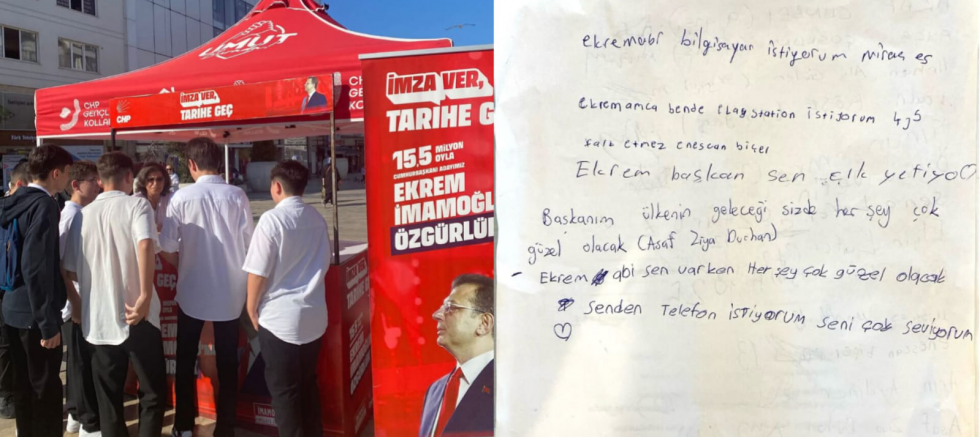 UMUT
İMZA VER,
TARİHE GEÇ
CHP
GENÇL
KOLLA
CHP
CHP
İMZA VER,
TARİHE G
15,5 MİLYON
OYLA
CUMHURBAŞKANI ADAYIMIZ
EKREM
İMAMOĞL
ÖZGÜRLÜ
ekremabi bilgisayar istiyorum miraç eş
Ekremamca bende Playstation istiyorum 4,5
fark etmez enescan biçer
Ekrem başkan sen çok yetiyo
Başkanım ülkenin geleceği sizde her şey çok
güzel olacak (Asaf Ziya Duchan)
- Ekrem abi sen varken Herşey çok güzel olacak
senden Telefon istiyorum seni çok seviyorum